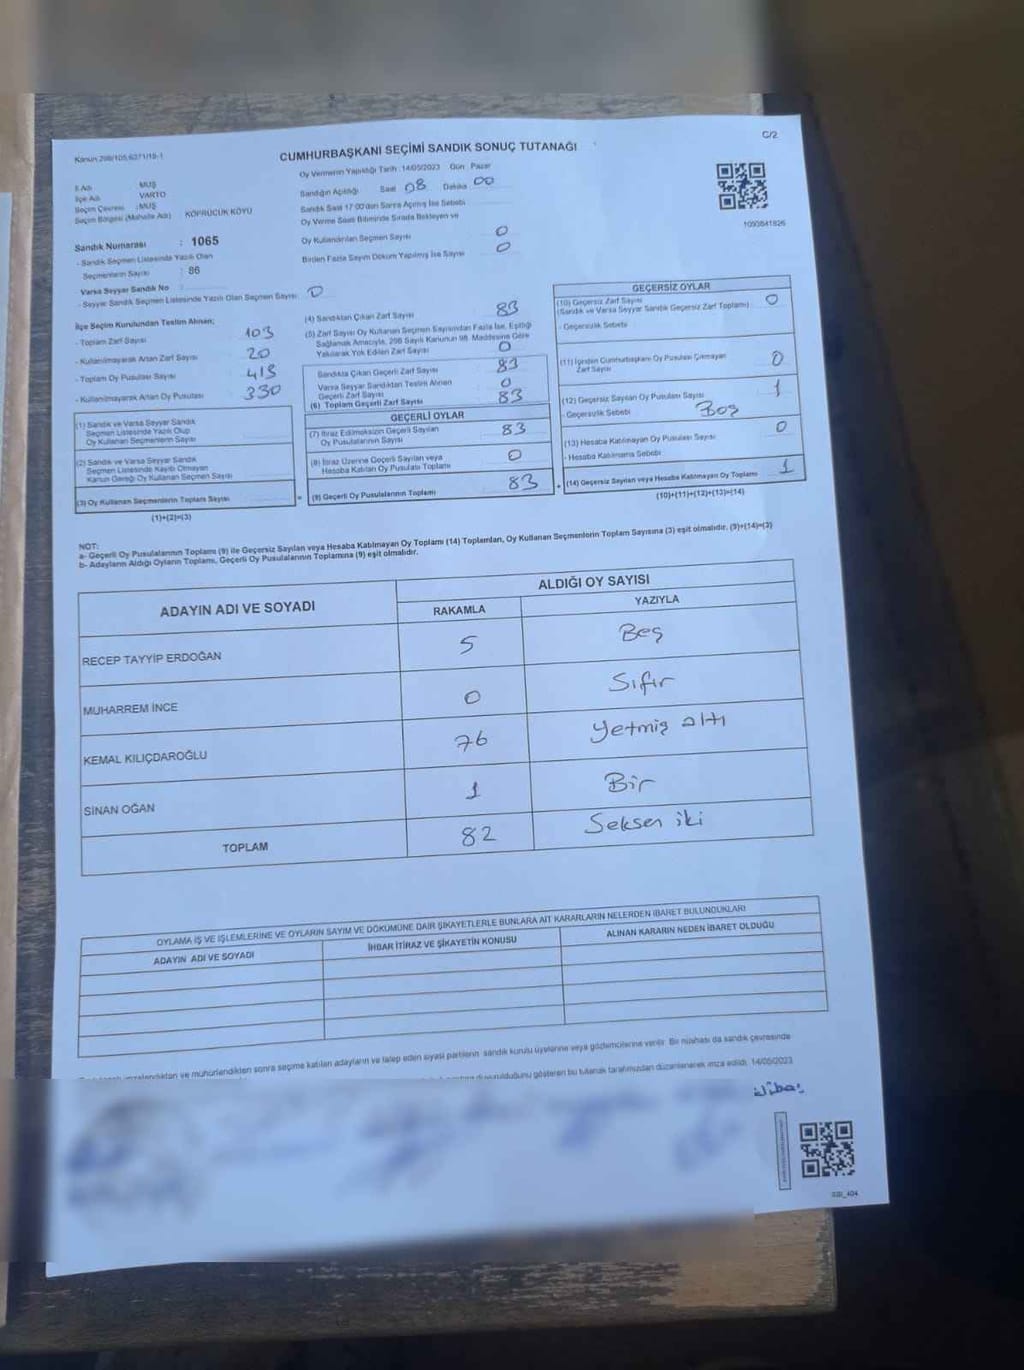 C/2
Kanun 298/105,6271/18-1
CUMHURBAŞKANI SEÇİMİ SANDIK SONUÇ TUTANAĞI
İl Adı MUŞ
İlçe Adı VARTO
Seçim Çevresi : MUŞ
Seçim Bölgesi (Mahalle Adı) KÖPRÜCÜK KÖYÜ
Sandık Numarası : 1065
- Sandık Seçmen Listesinde Yazılı Olan
Seçmenlerin Sayısı : 86
- Varsa Seyyar Sandık No
- Seyyar Sandık Seçmen Listesinde Yazılı Olan Seçmen Sayısı 0
Oy Vermenin Yapıldığı Tarih : 14/05/2023 Gün Pazar
Sandığın Açıldığı Saat 08 Dakika 00
Sandık Saat 17:00'den Sonra Açılmış İse Sebebi
Oy Verme Saati Bitiminde Sırada Bekleyen ve
Oy Kullandırılan Seçmen Sayısı 0
Birden Fazla Sayım Döküm Yapılmış İse Sayısı 0
1093841826
İlçe Seçim Kurulundan Teslim Alınan;
- Toplam Zarf Sayısı 103
- Kullanılmayarak Artan Zarf Sayısı 20
- Toplam Oy Pusulası Sayısı 413
- Kullanılmayarak Artan Oy Pusulası 330
(1) Sandık ve Varsa Seyyar Sandık
Seçmen Listesinde Yazılı Olup
Oy Kullanan Seçmenlerin Sayısı
(2) Sandık ve Varsa Seyyar Sandık
Seçmen Listesinde Kayıtlı Olmayan
Kanun Gereği Oy Kullanan Seçmen Sayısı
(3) Oy Kullanan Seçmenlerin Toplam Sayısı
(1)+(2)=(3)
(4) Sandıktan Çıkan Zarf Sayısı 83
(5) Zarf Sayısı Oy Kullanan Seçmen Sayısından Fazla İse, Eşitliği
Sağlamak Amacıyla, 298 Sayılı Kanunun 98. Maddesine Göre
Yakılarak Yok Edilen Zarf Sayısı 0
Sandıkta Çıkan Geçerli Zarf Sayısı 83
Varsa Seyyar Sandıktan Teslim Alınan
Geçerli Zarf Sayısı 0
(6) Toplam Geçerli Zarf Sayısı 83
GEÇERLİ OYLAR
(7) İtiraz Edilmeksizin Geçerli Sayılan
Oy Pusulalarının Sayısı 83
(8) İtiraz Üzerine Geçerli Sayılan veya
Hesaba Katılan Oy Pusulası Toplamı 0
= (9) Geçerli Oy Pusulalarının Toplamı 83
GEÇERSİZ OYLAR
(10) Geçersiz Zarf Sayısı
(Sandık ve Varsa Seyyar Sandık Geçersiz Zarf Toplamı) 0
- Geçersizlik Sebebi
(11) İçinden Cumhurbaşkanı Oy Pusulası Çıkmayan
Zarf Sayısı 0
(12) Geçersiz Sayılan Oy Pusulası Sayısı 1
- Geçersizlik Sebebi Boş
(13) Hesaba Katılmayan Oy Pusulası Sayısı 0
- Hesaba Katılmama Sebebi
+ (14) Geçersiz Sayılan veya Hesaba Katılmayan Oy Toplamı 1
(10)+(11)+(12)+(13)=(14)
NOT:
a- Geçerli Oy Pusulalarının Toplamı (9) ile Geçersiz Sayılan veya Hesaba Katılmayan Oy Toplamı (14) Toplamları, Oy Kullanan Seçmenlerin Toplam Sayısına (3) eşit olmalıdır. (9)+(14)=(3)
b- Adayların Aldığı Oyların Toplamı, Geçerli Oy Pusulalarının Toplamına (9) eşit olmalıdır.
ADAYIN ADI VE SOYADI ALDIĞI OY SAYISI
RAKAMLA YAZIYLA
RECEP TAYYİP ERDOĞAN 5 Beş
MUHARREM İNCE 0 Sıfır
KEMAL KILIÇDAROĞLU 76 Yetmiş altı
SİNAN OĞAN 1 Bir
TOPLAM 82 Seksen iki
OYLAMA İŞ VE İŞLEMLERİNE VE OYLARIN SAYIM VE DÖKÜMÜNE DAİR ŞİKAYETLERLE BUNLARA AİT KARARLARIN NELERDEN İBARET BULUNDUKLARI
ADAYIN ADI VE SOYADI İHBAR İTİRAZ VE ŞİKAYETİN KONUSU ALINAN KARARIN NEDEN İBARET OLDUĞU
imzalandıktan ve mühürlendikten sonra seçime katılan adayların ve talep eden siyasi partilerin sandık kurulu üyelerine veya gözlemcilerine verilir. Bir nüshası da sandık çevresinde
duyurulduğunu gösteren bu tutanak tarafımızdan düzenlenerek imza edildi. 14/05/2023